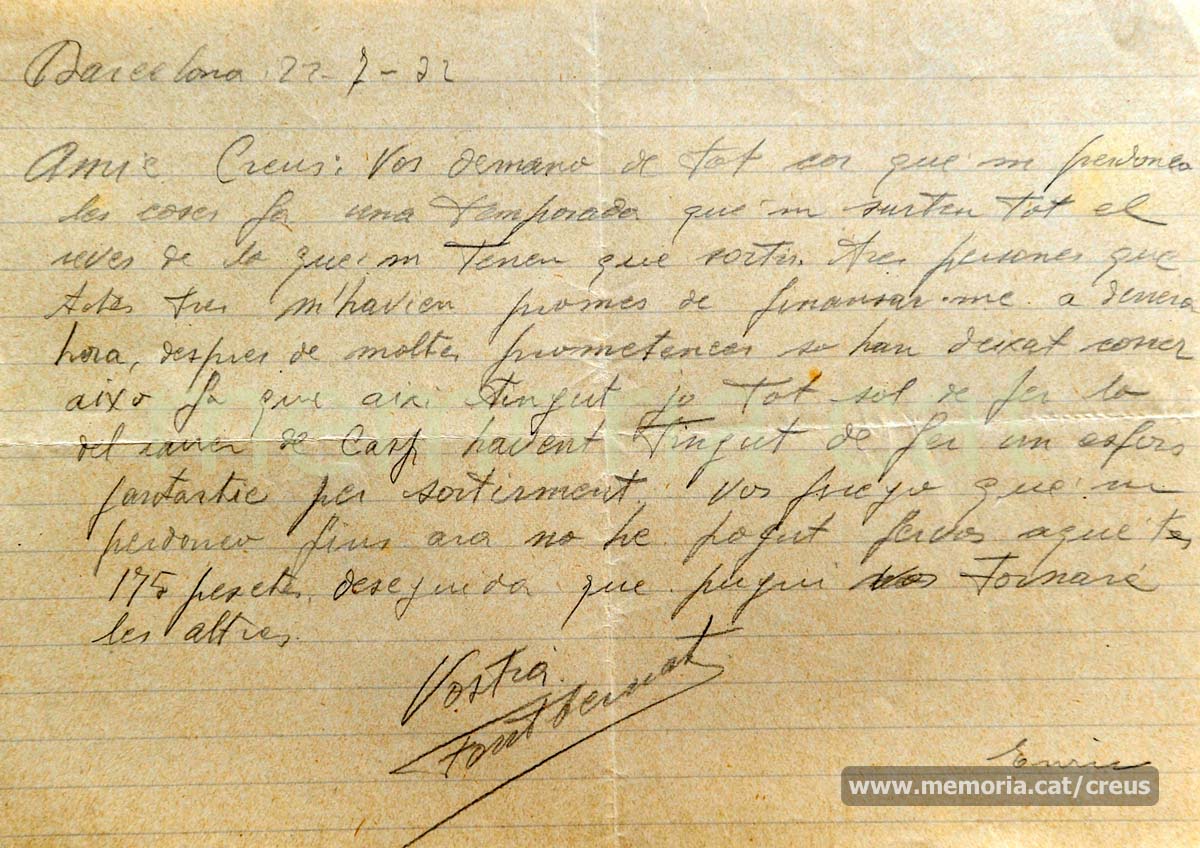 Barcelona 22-7-32
Amic Creus: Vos demano de tot cor que m perdoneu
les coses fa una temporada que'm surten tot el
reves de lo que'm tenen que sortir. tres persones que
totes tres m'havien promes de finansar-me a derrera
hora, despres de moltes prometences so han deixat correr
aixo fa que aixi tingut jo tot sol de fer lo
del carrer de Casp havent tingut de fer un esfors
fantastic per sortirment. Vos prego que'm
perdoneu fins ara no he pogut fervos aquetes
175 pesetes, deseguida que pugui vos tornaré
les altres.
Vostra
Fontbernat
Enric
www.memoria.cat/creus